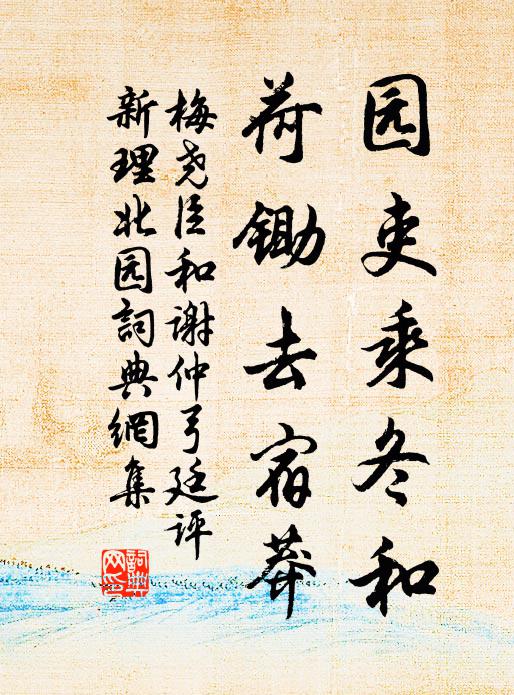 园吏乘冬和
荷锄去宿莽
梅尧臣和谢仲弓廷评
新理北园詞典網集
詞典
网印